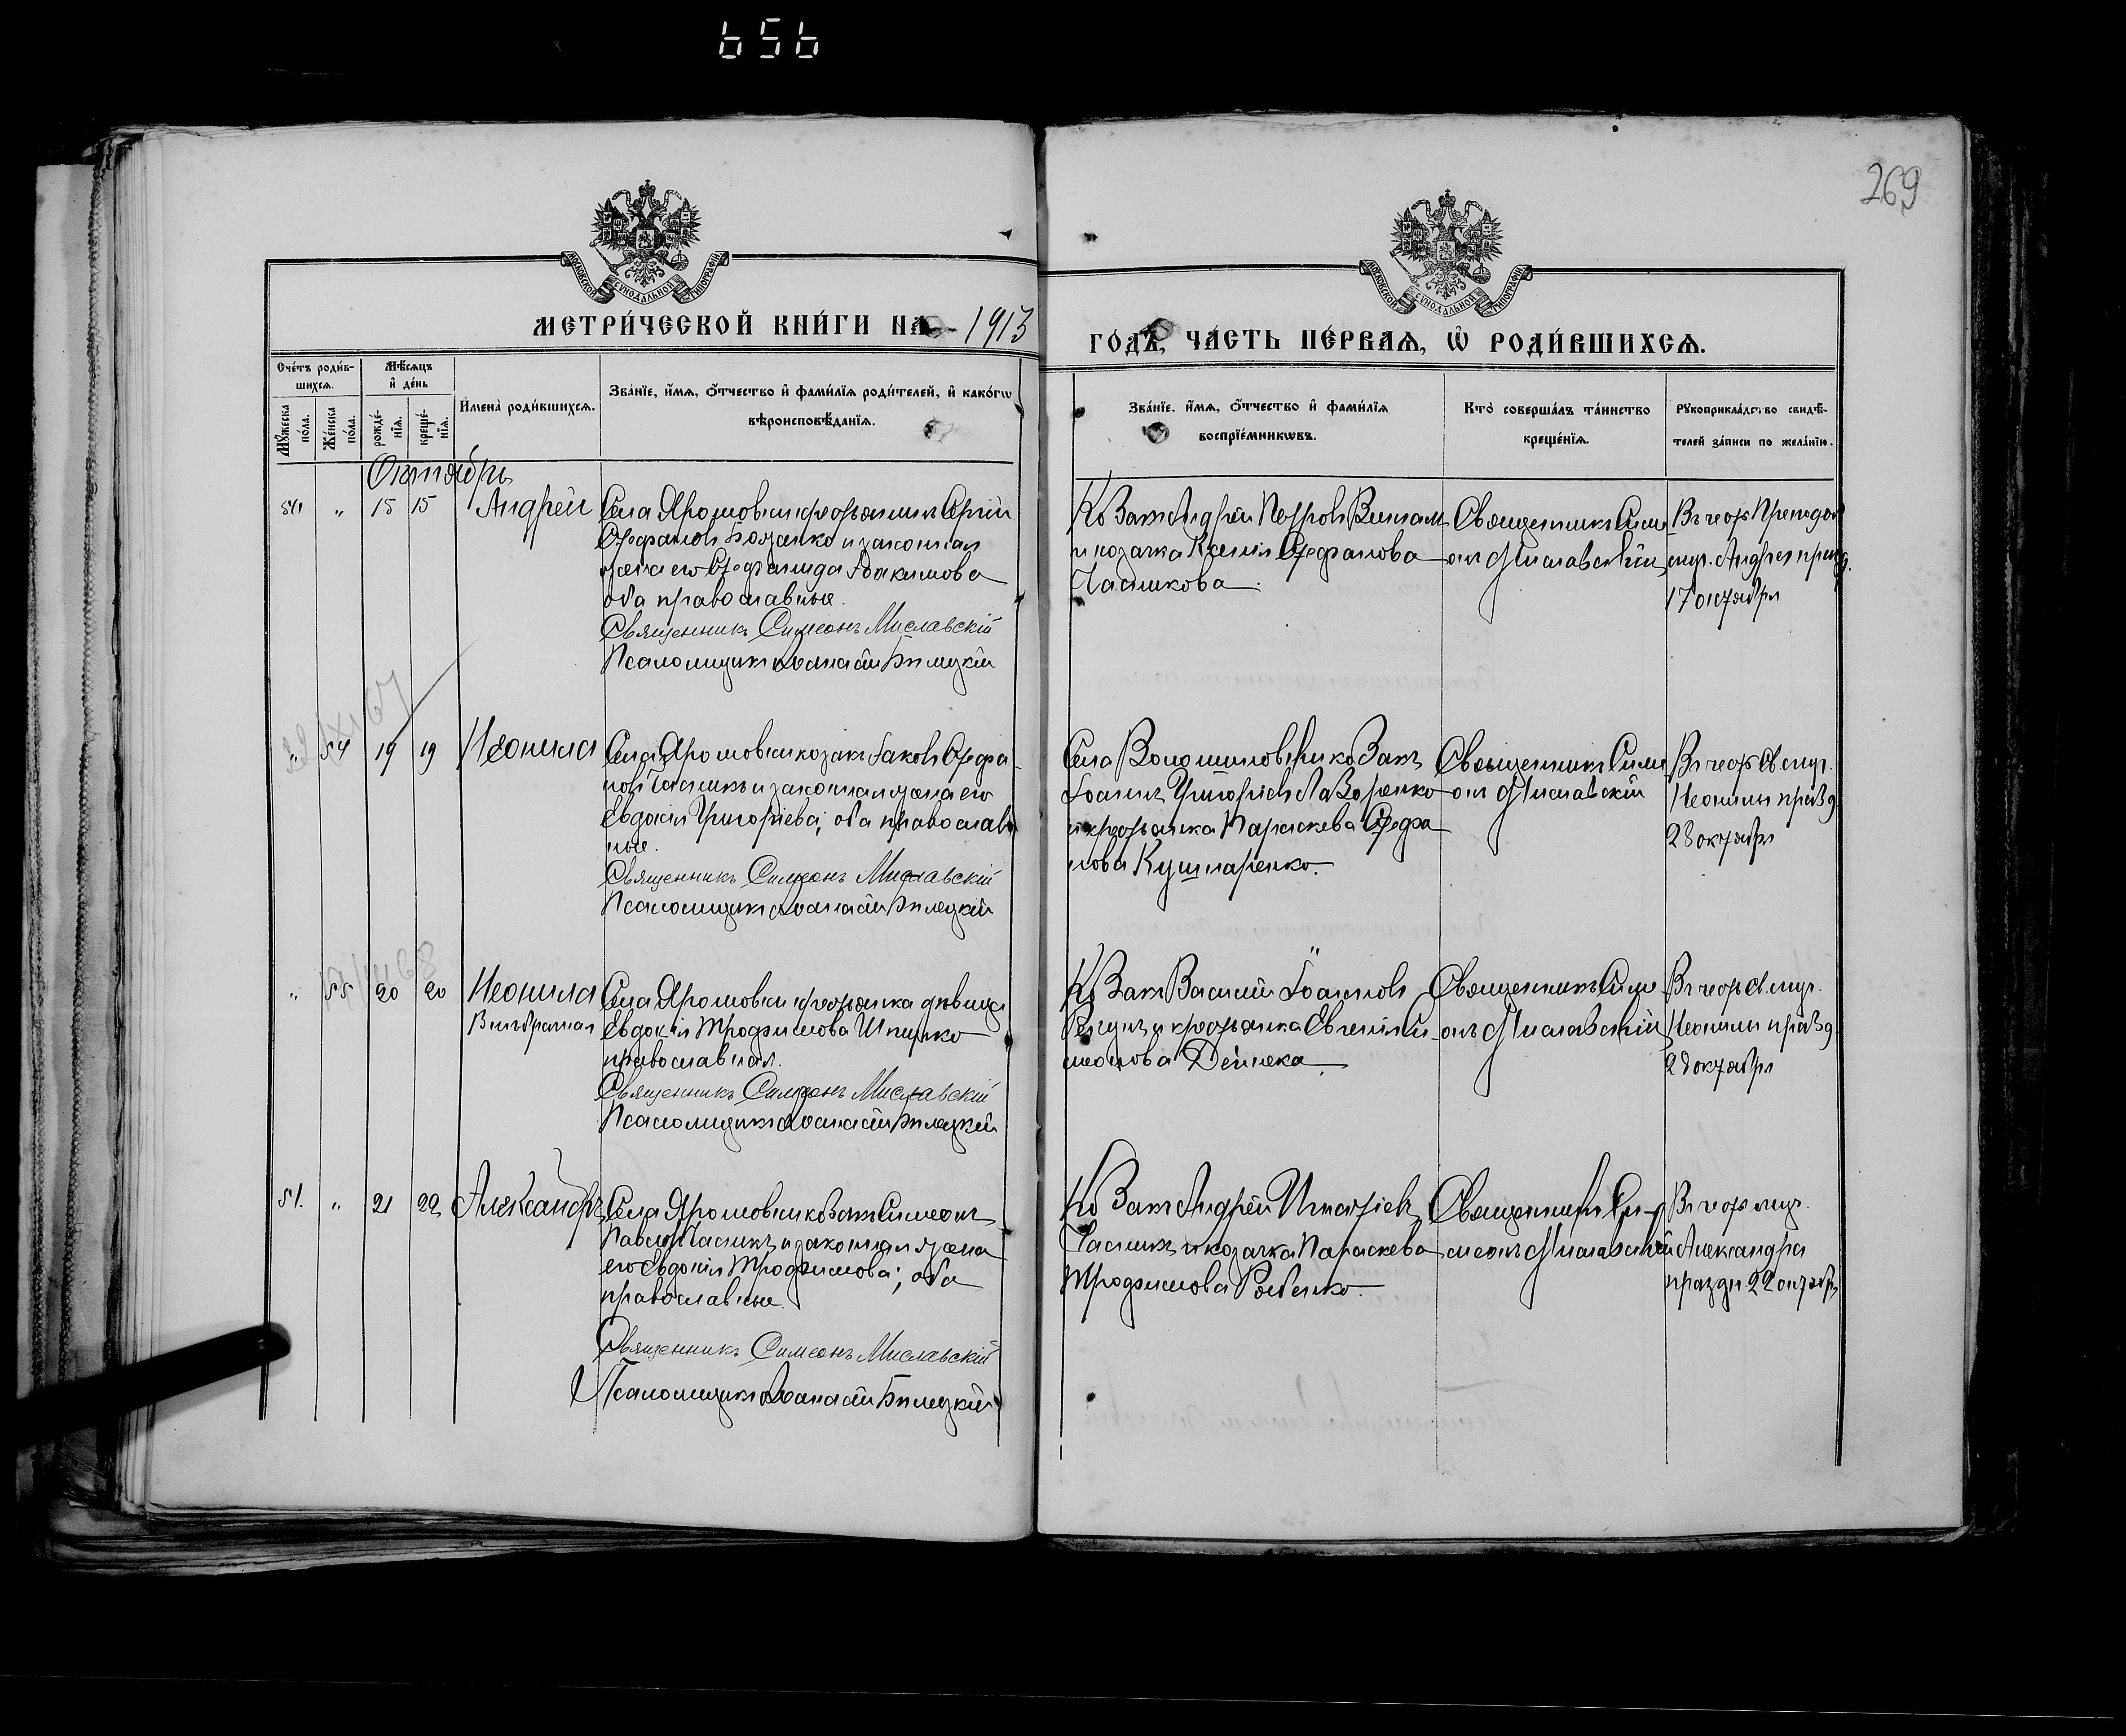 656
269
МОСКОВСКОЙ СѴНОДАЛЬНОЙ ТИПОГРАФІИ
МОСКОВСКОЙ СѴНОДАЛЬНОЙ ТИПОГРАФІИ
МЕТРИ́ЧЕСКОЙ КНИ́ГИ НА 1913
ГОДЪ, ЧА́СТЬ ПЕ́РВАѦ, Ѡ҆ РОДИ́ВШИХСѦ.
Сче́тъ роди́в-
шихсѧ.
Мꙋ́жеска по́ла.
Же́нска по́ла.
Мѣ́сѧцъ
и҆ де́нь
рожде́-
нїѧ.
креще́-
нїѧ.
И҆мена̀ роди́вшихсѧ.
Зва́нїе, и҆́мѧ, ѻ҆́тчество и҆ фами́лїѧ роди́телей, и҆ како́гѡ
вѣроисповѣ́данїѧ.
Зва́нїе, и҆́мѧ, ѻ҆́тчество и҆ фами́лїѧ
воспрїе́мникѡвъ.
Кто̀ соверша́лъ та́инство
креще́нїѧ.
Рꙋкоприкла́дство свидѣ́-
телей за́писи по жела́нїю.
Октябрь
" 15 15 Андрей
Села Ярошовки крестьянинъ Сергій
Стефановъ и законная
жена его Стефанида Іоакимова
оба православные.
Священникъ Симеонъ Миславскій
Псаломщикъ Аѳанасій Билецкій
Козакъ Андрей Петровъ
и козачка Ксенія Стефанова
Часникова.
Священникъ Симе
онъ Миславскій
Въ честь Преподоб
мүч. Андрея празд.
17 октября
" 54 19 19 Неонила
Села Ярошовки козакъ Іаковъ Стефа-
новъ Часникъ и законная жена его
Евдокія Григоріева; оба православ
ные.
Священникъ Симеонъ Миславскій
Псаломщикъ Аѳанасій Билецкій
Села козакъ
Іоаннъ Григоріевъ Лазоренко
и крестьянка Параскева Стефа
нова Кушнаренко.
Священникъ Симе
онъ Миславскій
Въ честь Св. муч.
Неонилы празд
28 октября
" 55 20 20 Неонила
Внѣбрачная
Села Ярошовки крестьянка дѣвица
Евдокія Трофимова
православная.
Священникъ Симеонъ Миславскій
Псаломщикъ Аѳанасій Билецкій
Козакъ Василій Іоанновъ
и крестьянка Евгенія Си
меонова Дейнека.
Священникъ Симе
онъ Миславскій
Въ честь Св. муч.
Неонилы празд
28 октября
51. " 21 22 Александръ
Села Ярошовки козакъ Симеонъ
Павловъ Часникъ и законная жена
его Евдокія Трофимова; оба
православные.
Священникъ Симеонъ Миславскій
Псаломщикъ Аѳанасій Билецкій
Козакъ Андрей Игнатіевъ
Часникъ и козачка Параскева
Трофимова
Священникъ Си-
меонъ Миславскій
Въ честь муч.
Александра
праздн. 22 октября